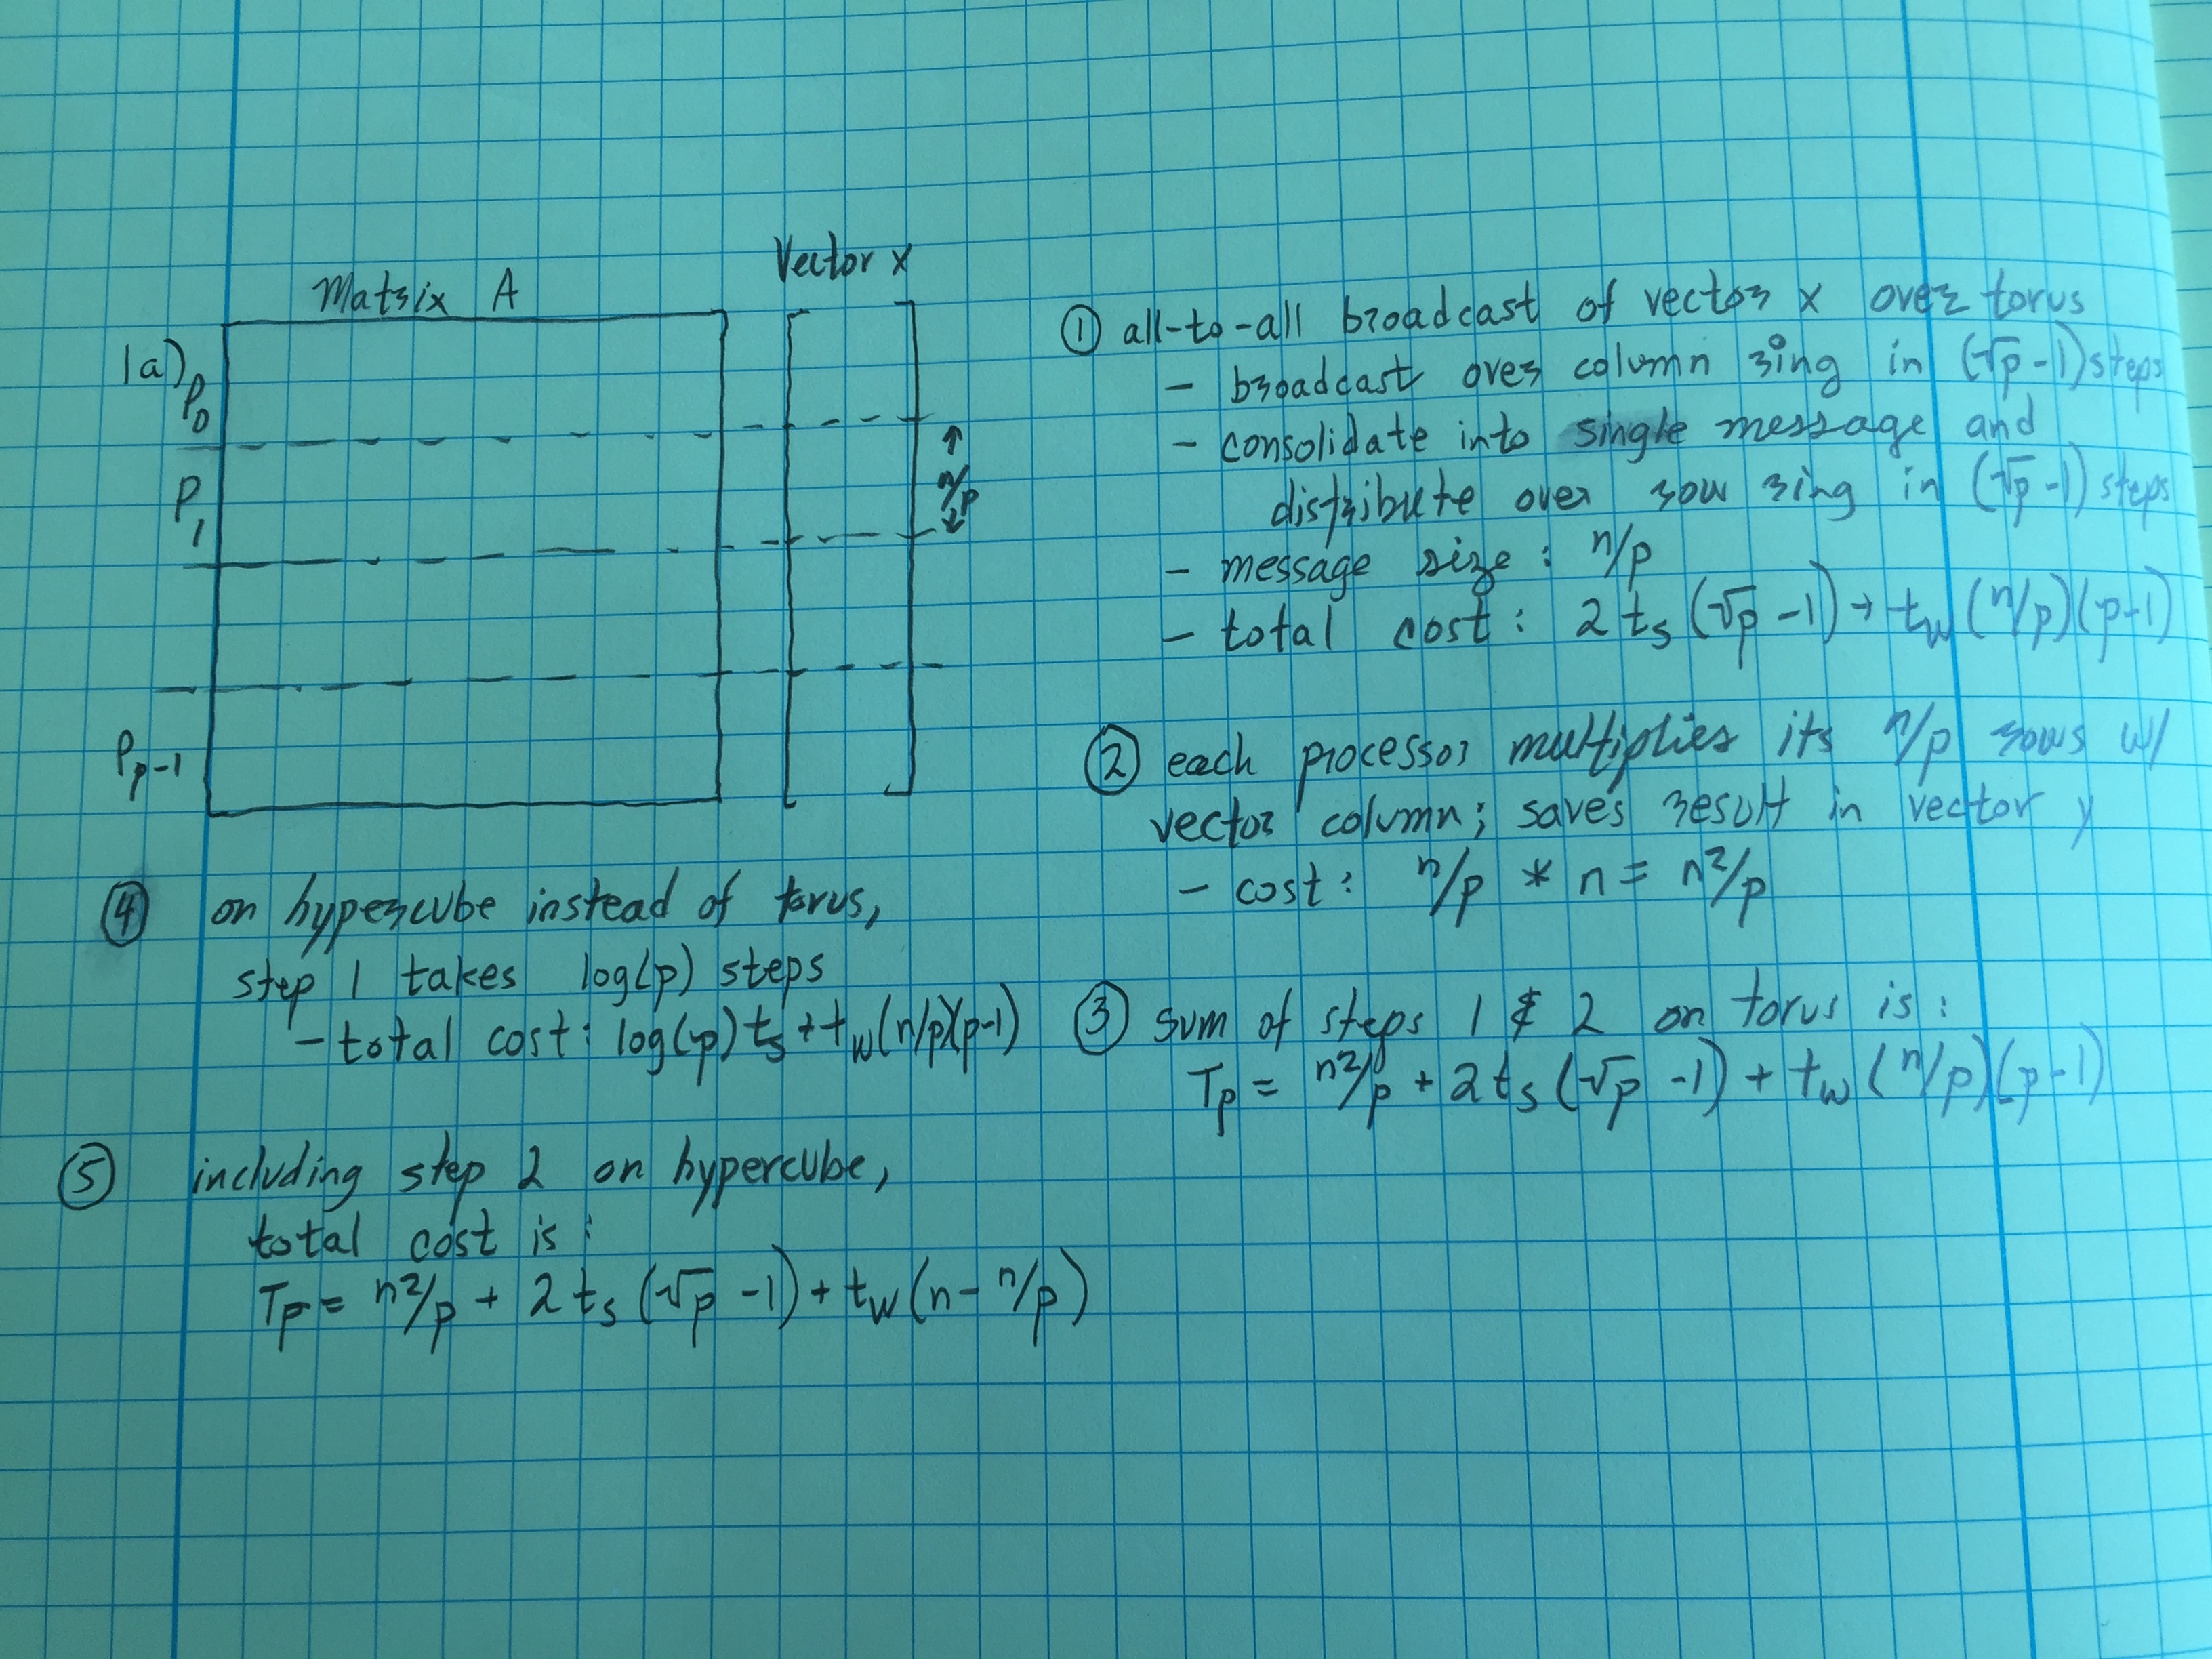 Matrix A
Vector x
1a)
P0
P1
n/p
Pp-1
① all-to-all broadcast of vector x over torus
- broadcast over column ring in (√p-1) steps
- consolidate into single message and
distribute over row ring in (√p-1) steps
- message size: n/p
- total cost: 2 ts (√p -1) + tw (n/p)(p-1)
② each processor multiplies its n/p rows w/
vector column; saves result in vector y
- cost: n/p * n = n²/p
③ sum of steps 1 & 2 on torus is:
Tp = n²/p + 2 ts (√p -1) + tw (n/p)(p-1)
④ on hypercube instead of torus,
step 1 takes log(p) steps
- total cost: log(p) ts + tw (n/p)(p-1)
⑤ including step 2 on hypercube,
total cost is:
Tp = n²/p + 2 ts (√p -1) + tw (n- n/p)